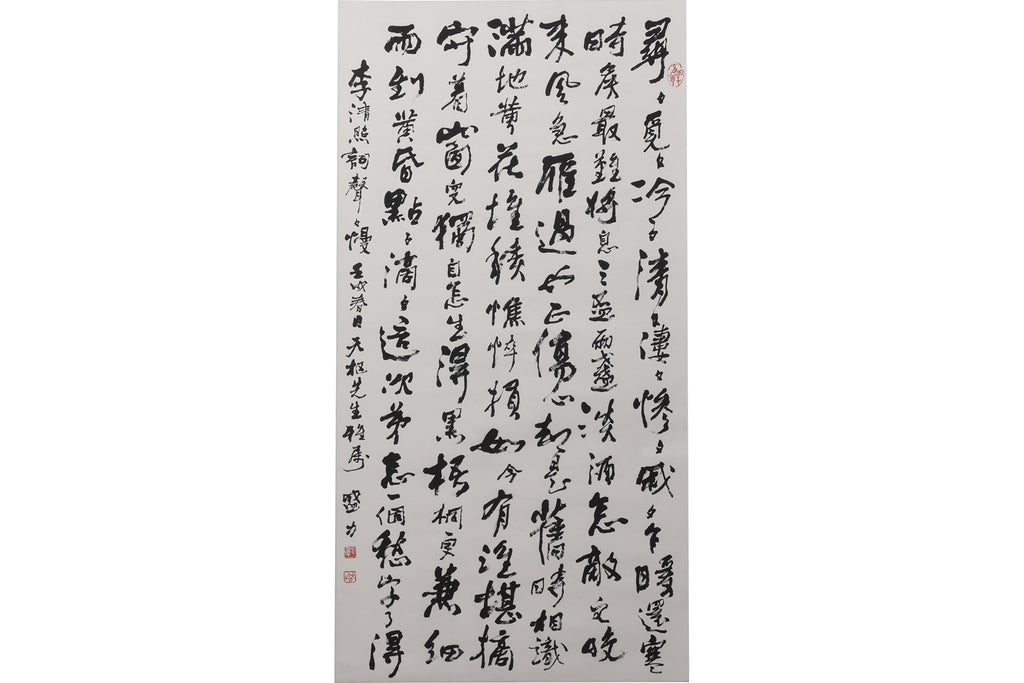 尋〻覓〻冷〻清〻凄〻慘〻慽〻乍暖還寒
時候最難將息三盃兩盞淡酒怎敵它晚
来風急雁過也正傷心却是舊時相識
滿地黄花堆積憔悴損如今有誰堪摘
守着窗兒獨自怎生得黑梧桐更兼細
雨到黄昏點〻滴〻這次第怎一個愁字了得
李清照詞聲〻慢 壬戌春日 天枢先生雅属 盛力